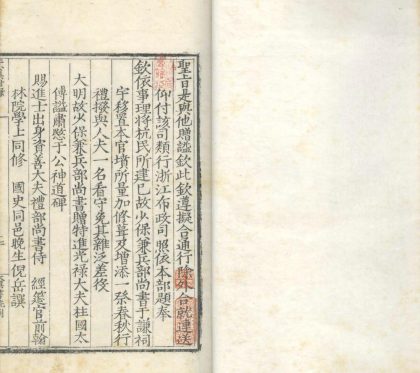 聖旨是與他贈謚欽此欽遵擬合通行除外合就連送
仰付該司類行浙江布政司照依本部題奉
欽依事理將杭民所建已故少保兼兵部尚書于謙祠
宇移置本官墳所量加修葺及增添一祭春秋行
禮撥與人夫一名看守免其雜泛差役
大明故少保兼兵部尚書贈特進光祿大夫柱國太
傅謚肅愍于公神道碑
賜進士出身資善大夫禮部尚書侍 經筵官前翰
林院學士同修 國史同邑晚生倪岳譔